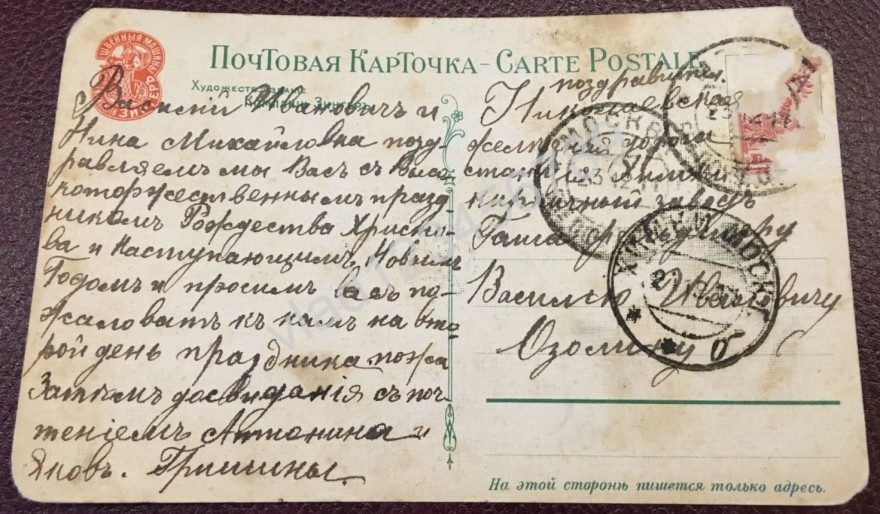 ПОЧТОВАЯ КАРТОЧКА – CARTE POSTALE
Художеств
ШВЕЙНЫЯ МАШИНЫ
Василій Ивановичъ и
Нина Михайловна позд
равляемъ мы Васъ съ Высо
которжественнымъ празд
никомъ Рождества Христо
ва и Наступающимъ Новымъ
Годомъ и просимъ Васъ по
жаловать къ намъ на вто
рой день праздника пожа
Затѣмъ досвиданія съ поч
теніемъ Антонина и
Яковъ. Гришины
поздравител.
Николаевская
желѣзной дороги
станція Химки
кирпичный заводъ
Василью Ивановичу
Озолину
МОСКВА
23 12 11
23 12 11
ХИМКИ МОСК. Г.
б
На этой сторонѣ пишется только адресъ.